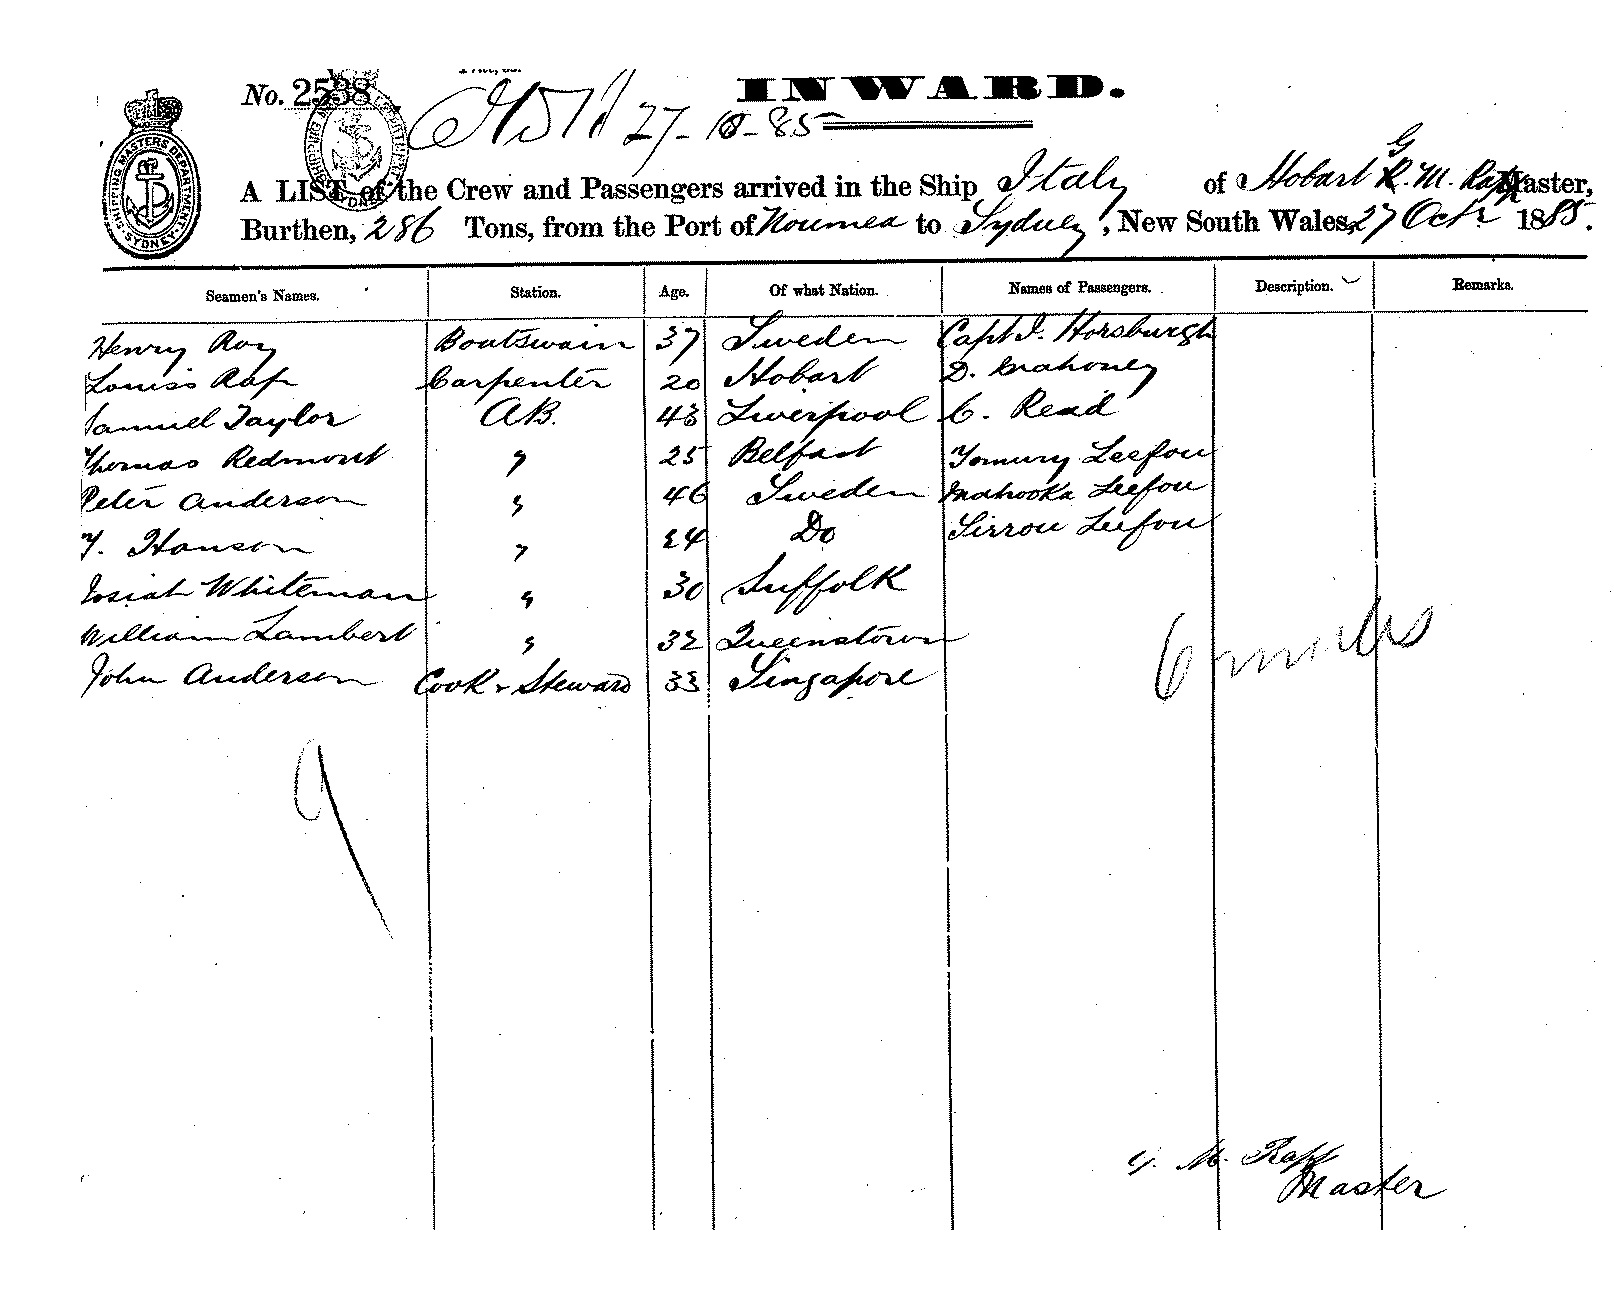 No. 2538
INWARD.
27-10-85
SHIPPING MASTERS DEPARTMENT SYDNEY
A LIST of the Crew and Passengers arrived in the Ship Italy of Hobart G. M. Rapp Master,
Burthen, 286 Tons, from the Port of Noumea to Sydney, New South Wales, 27 Octr 1885.
Seamen's Names. Station. Age. Of what Nation. Names of Passengers. Description. Remarks.
Henry Roy Boatswain 37 Sweden Capt J. Horsburgh
Louiss Rap Carpenter 20 Hobart D. Mahoney
Samuel Taylor AB. 43 Liverpool C. Read
Thomas Redmont " 25 Belfast Leefou
Peter Anderson " 46 Sweden Mahooka Leefou
Hanson " 24 Do Sirrou Leefou
Josiah Whiteman " 30 Suffolk
William Lambert " 32 Queenstown
John Anderson Cook & Steward 33 Singapore
6 males
9
G. M. Rapp
Master